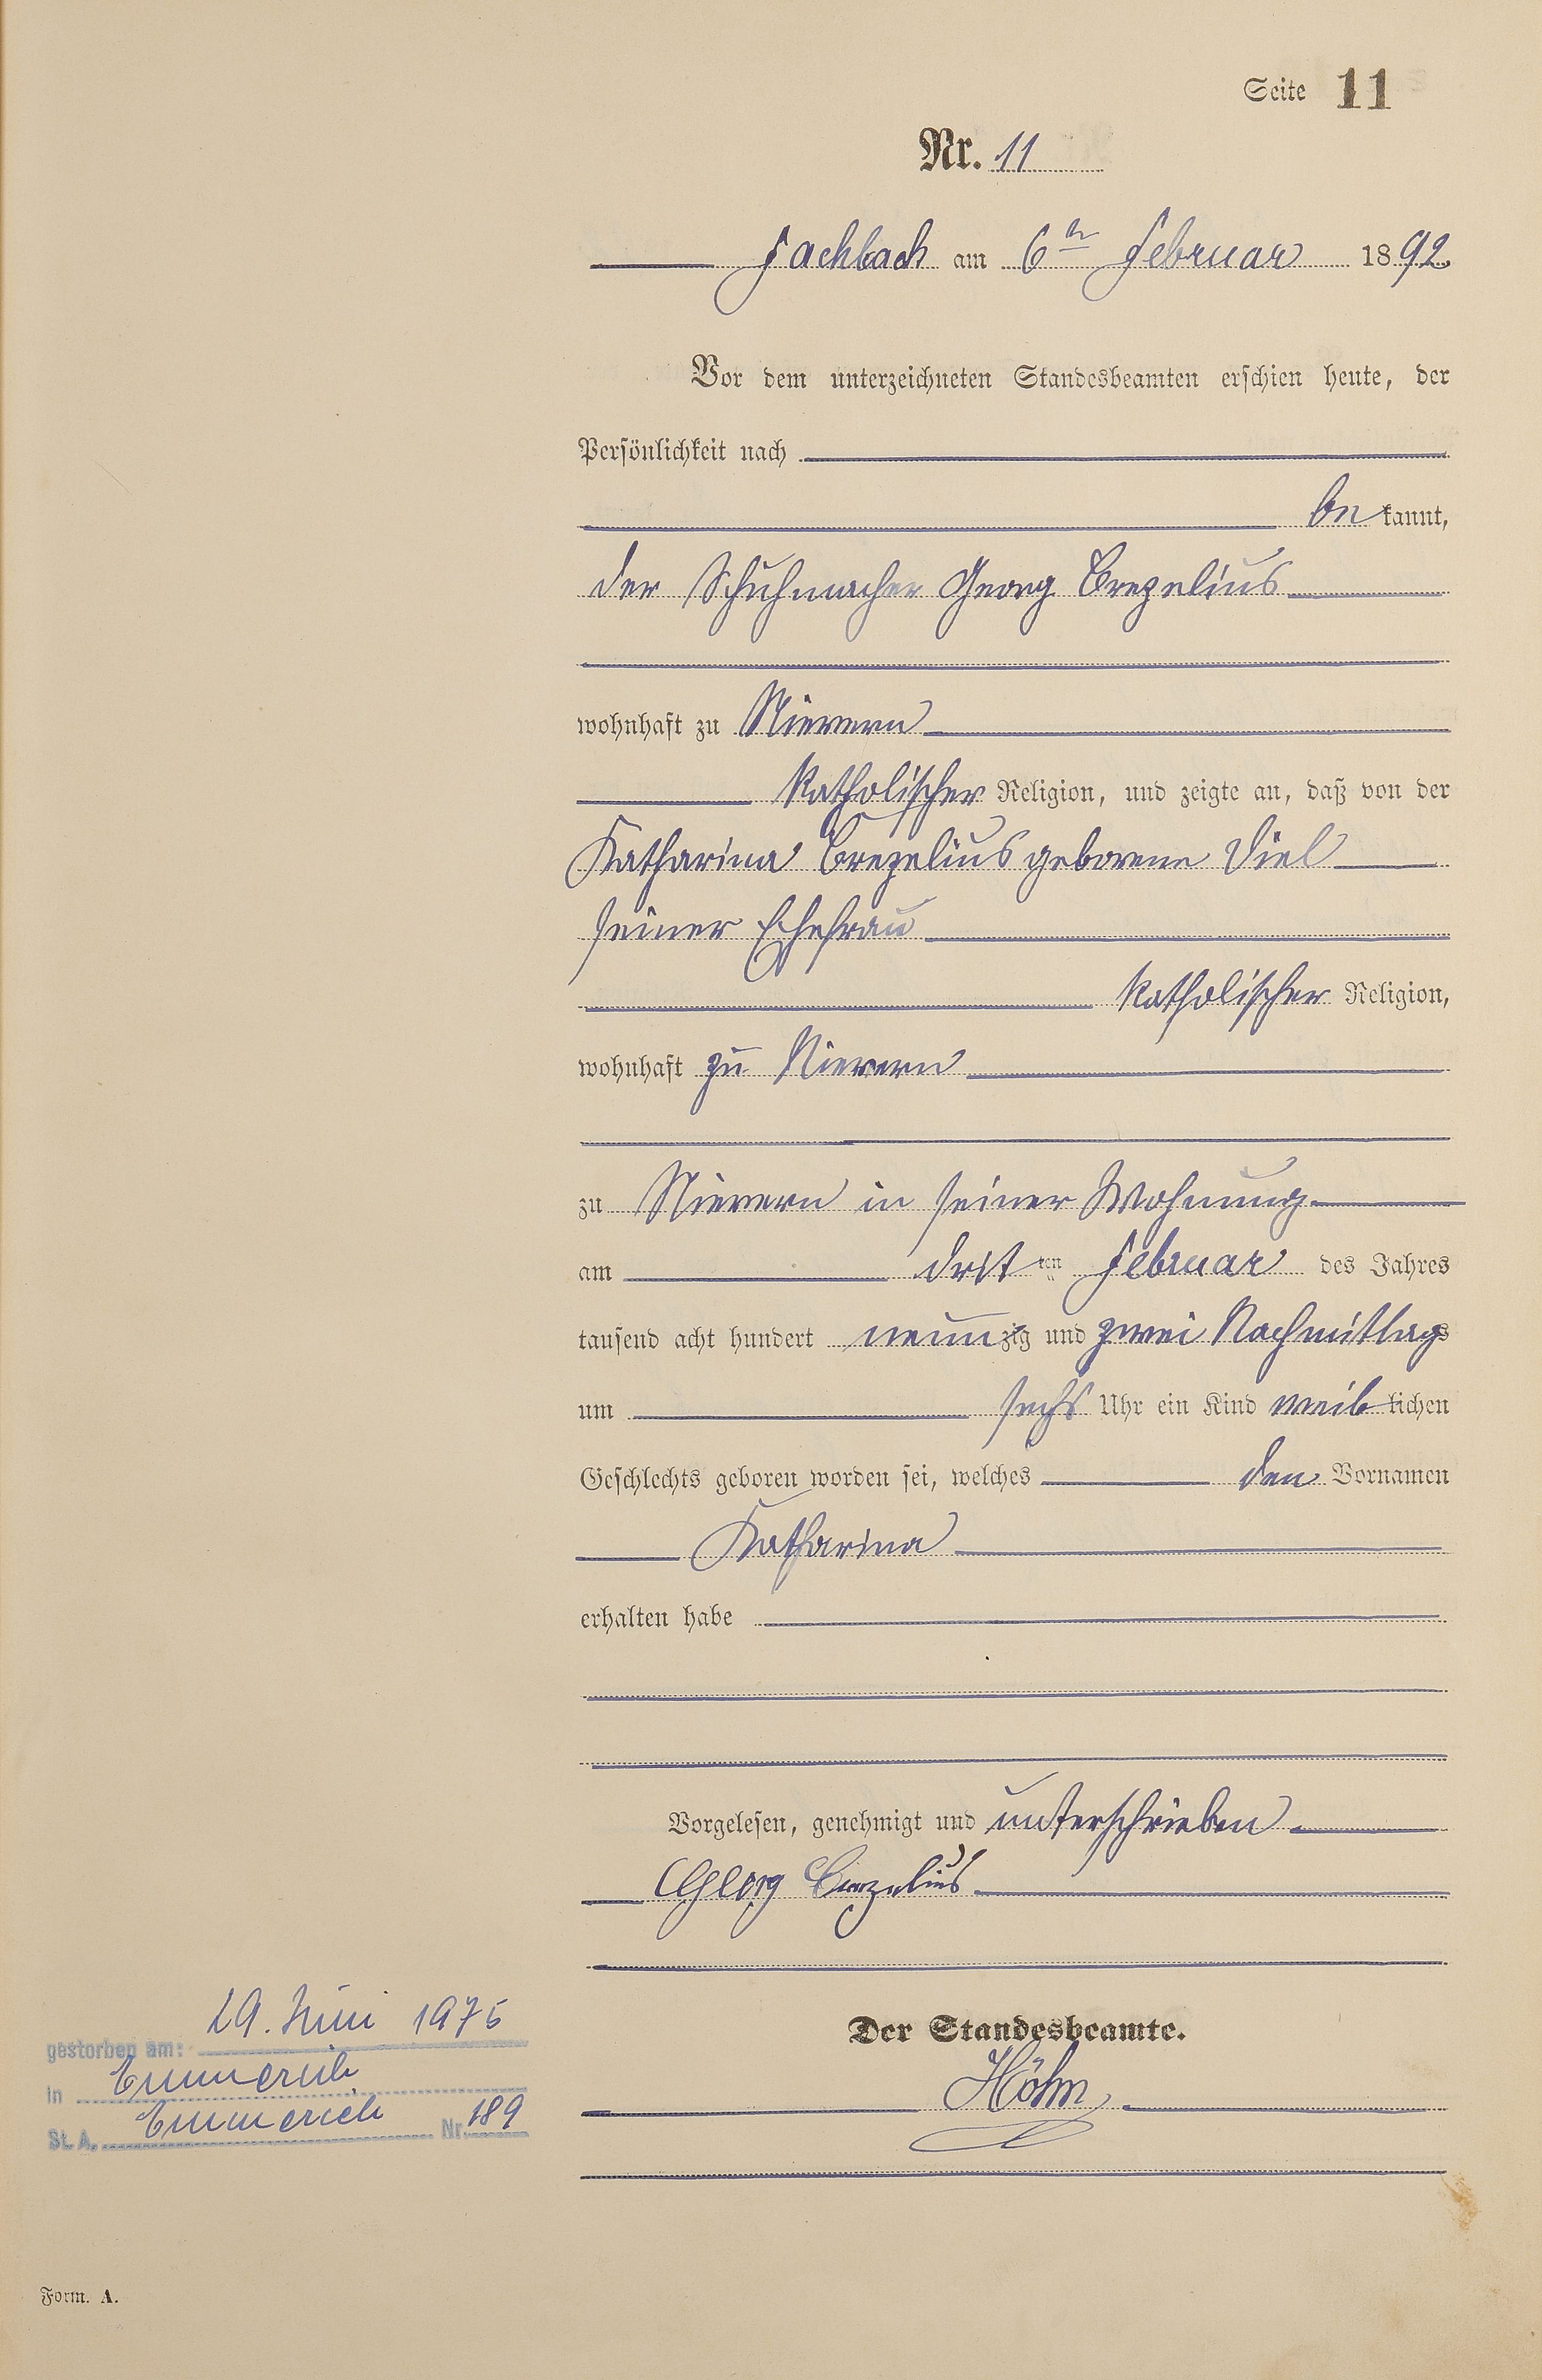 Seite 11
Nr. 11
Fachbach am 6ten Februar 1892
Vor dem unterzeichneten Standesbeamten erschien heute, der
Persönlichkeit nach
bekannt,
der Schuhmacher Georg Brezelius
wohnhaft zu Nievern
katholischer Religion, und zeigte an, daß von der
Katharina Brezelius geborene Diel
seiner Ehefrau
katholischer Religion,
wohnhaft zu Nievern
zu Nievern in seiner Wohnung
am dritten Februar des Jahres
tausend acht hundert neunzig und zwei Nachmittags
um sechs Uhr ein Kind weiblichen
Geschlechts geboren worden sei, welches den Vornamen
Katharina
erhalten habe
Vorgelesen, genehmigt und unterschrieben
Georg Brezelius
Der Standesbeamte.
Höhn
gestorben am: 29. Juni 1975
in Emmerich
St. A. Emmerich Nr. 189
Form. A.